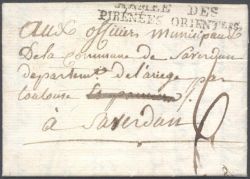 ARMÉE DES
PIRENÉES ORIENTLES
aux officiers municipaux
De la Commune de Saverdun
departement de l'ariege par
toulouse
à Saverdun